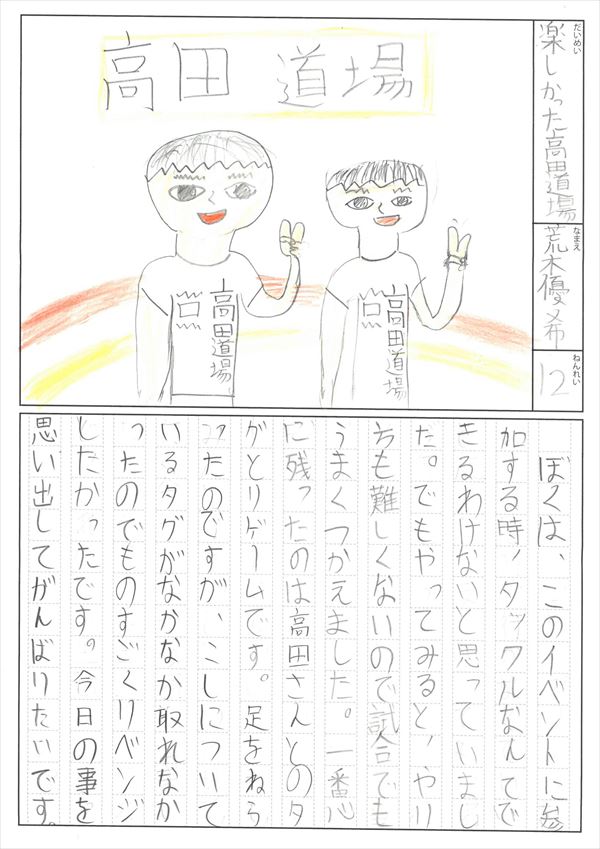 だいめい
楽しかった高田道場
なまえ
荒木優希
ねんれい
12
高田道場
高田道場
高田道場
ぼくは、このイベントに参
加する時、タックルなんてで
きるわけないと思っていまし
た。でもやってみると、やり
方も難しくないので試合でも
うまくつかえました。一番心
に残ったのは高田さんとのタ
グとりゲームです。足をねら
ったのですが、こしについて
いるタグがなかなか取れなか
ったのでものすごくリベンジ
したかったです。今日の事を
思い出してがんばりたいです。